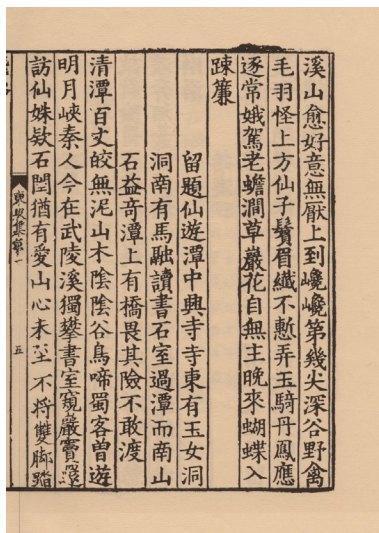 溪山愈好意無厭上到巉巉第幾尖深谷野禽
毛羽怪上方仙子鬢眉纖不慙弄玉騎丹鳳應
逐常娥駕老蟾澗草巖花自無主晚來蝴蝶入
疎簾
留題仙遊潭中興寺寺東有玉女洞
洞南有馬融讀書石室過潭而南山
石益奇潭上有橋畏其險不敢渡
清潭百丈皎無泥山木陰陰谷鳥啼蜀客曽遊
明月峽秦人今在武陵溪獨攀書室窺巖竇還
訪仙姝欵石閨猶有愛山心未至不将雙脚踏
東坡集卷一
五